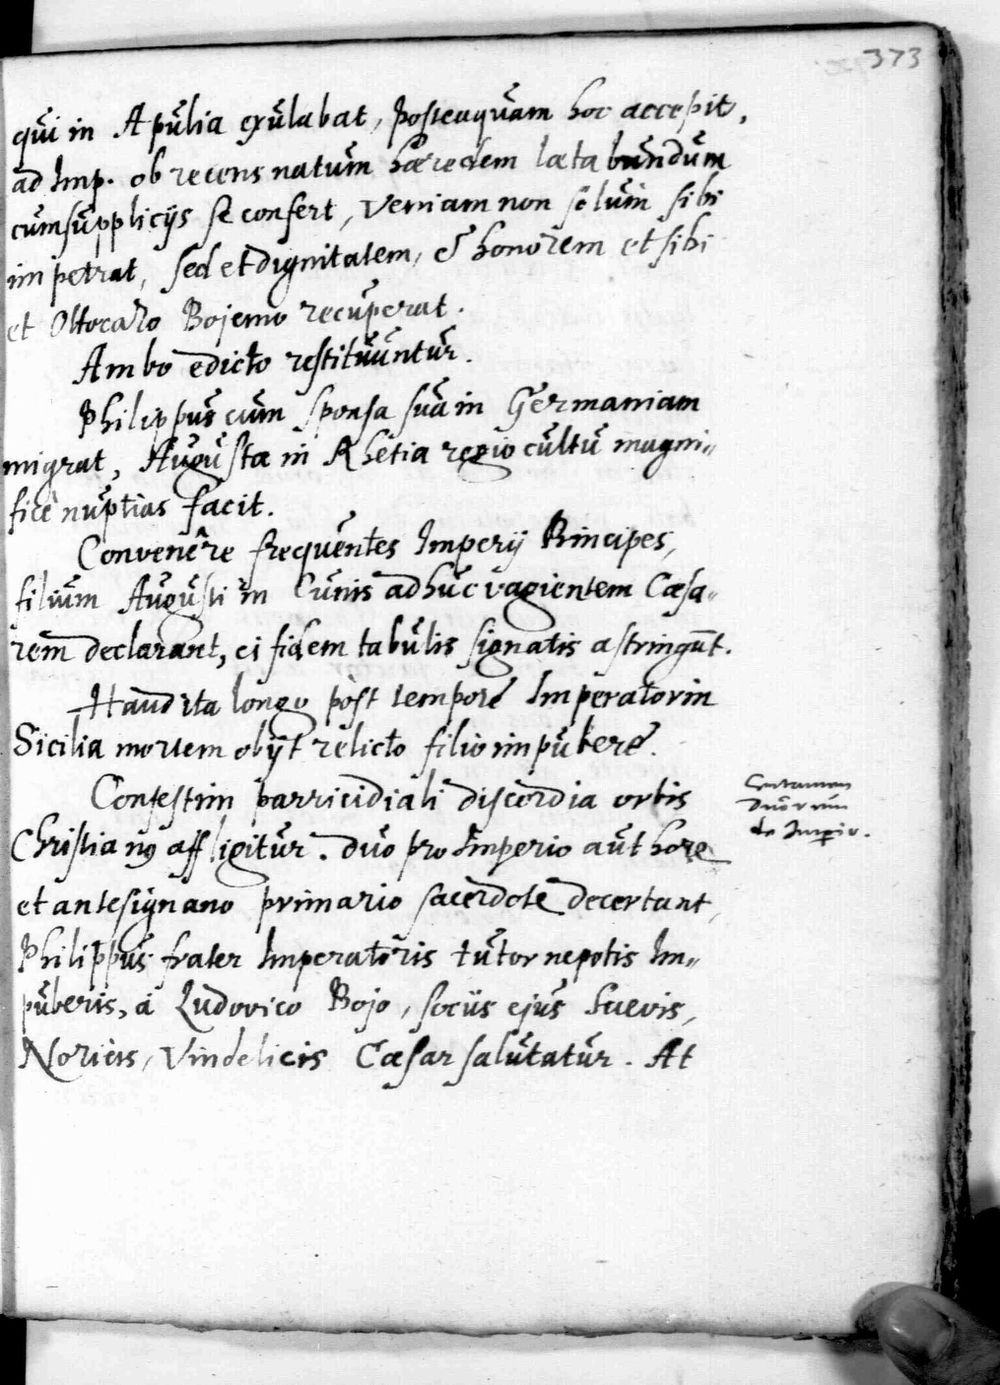 373
qui in Apulia exulabat, posteaquam hoc accepit,
ad Imp. ob recens natum hæredem lætabundum
cum supplicijs se confert, Veniam non solum sibi
impetrat, sed et dignitatem, & honorem et sibi
et Ottocaro Bojemo recuperat.
Ambo edicto restituuntur.
Philippus cum sponsa sua in Germaniam
migrat, Augusta in Rhetia regio cultu magni„
ficè nuptias facit.
Convenêre frequentes Imperij Principes,
filium Augusti in Cunis adhuc vagientem Cæsa„
rem declarant, ei fidem tabulis signatis astringūt.
Haud ita longo pòst tempore Imperator in
Sicilia mortem obijt relicto filio impubere.
Confestim parricidiali discordia orbis
Christianꝰ affligitur. duo pro Imperio authore
et antesignano primario sacerdote decertant,
Philippus frater Imperatoris tutor nepotis Im„
puberis, á Ludovico Bojo, socijs ejus Suevis,
Noricis, Vindelicis Cæsar salutatur. At
Certamen
duorum
de Imperio.